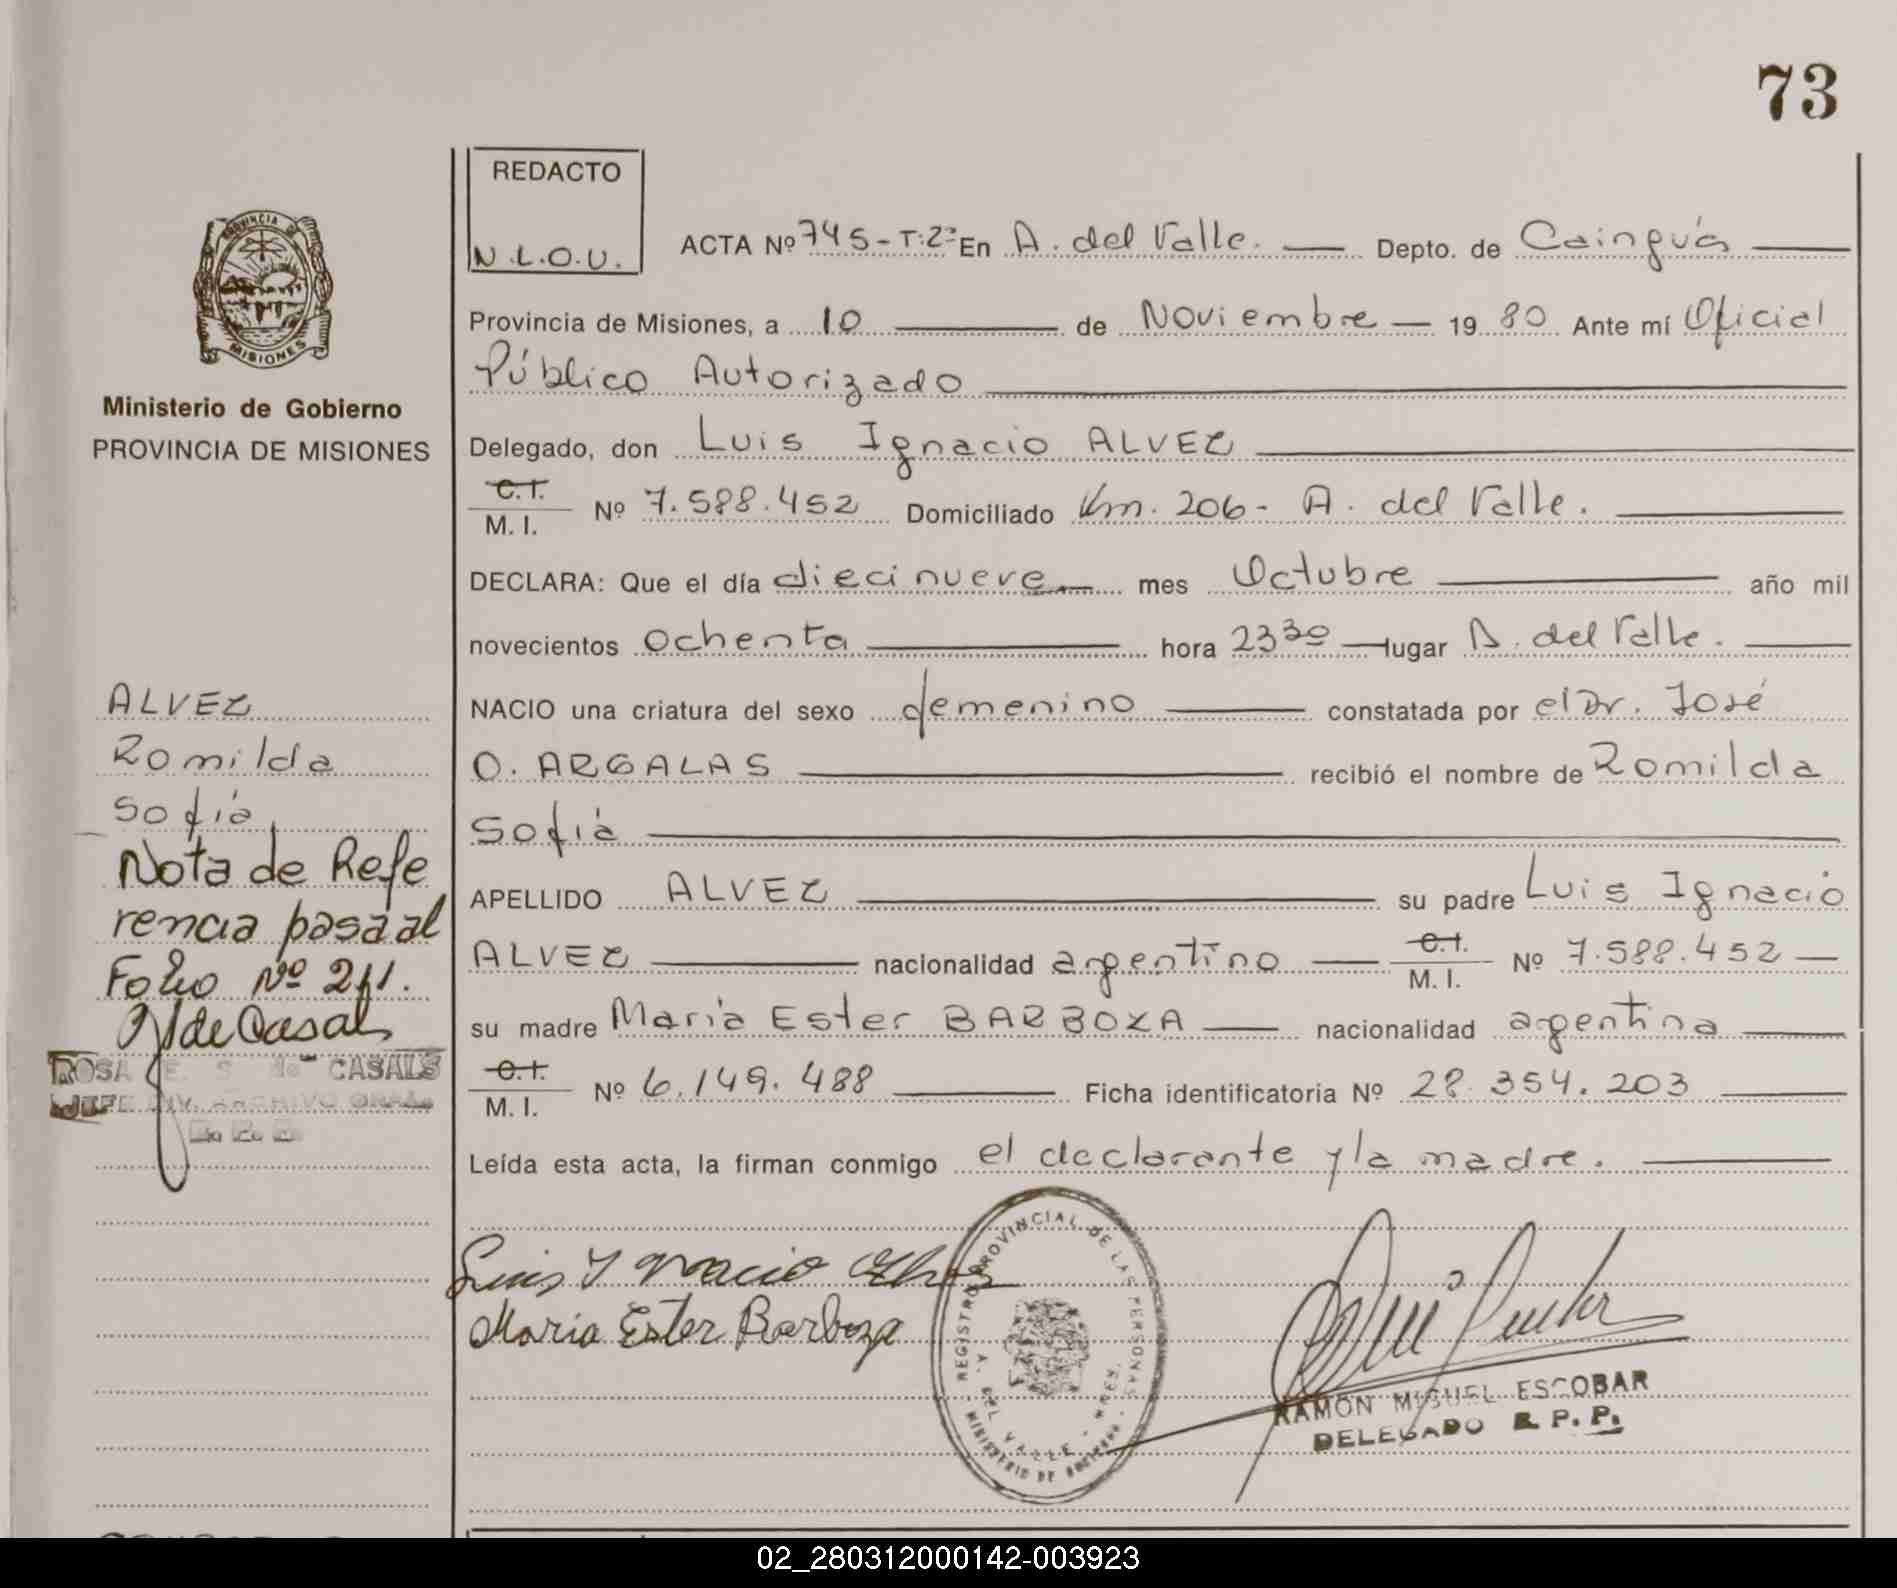 73
REDACTO
N.L.O.U.
ACTA Nº 745-T:2º En A. del Valle. Depto. de Cainguás
Provincia de Misiones, a 10 de Noviembre 1980 Ante mí Oficial
Público Autorizado
Delegado, don Luis Ignacio ALVEZ
C.I.
M. I. Nº 7.588.452 Domiciliado Km. 206- A. del Valle.
DECLARA: Que el día diecinueve mes Octubre año mil
novecientos ochenta hora 23 30 lugar A. del Valle.
NACIO una criatura del sexo femenino constatada por el Dr. José
O. ARGALAS recibió el nombre de Romilda
Sofía
APELLIDO ALVEZ su padre Luis Ignacio
ALVEZ nacionalidad argentino C.I. M. I. Nº 7.588.452
su madre María Ester BARBOZA nacionalidad argentina
C.I.
M. I. Nº 6.149.488 Ficha identificatoria Nº 28.354.203
Leída esta acta, la firman conmigo el declarante y la madre.
Luis Ignacio
Maria Ester Barboza
REGISTRO PROVINCIAL DE LAS PERSONAS
A. DEL VALLE - MNES.
MINISTERIO DE GOBIERNO
RAMON MIGUEL ESCOBAR
DELEGADO R. P. P.
PROVINCIA DE
MISIONES
Ministerio de Gobierno
PROVINCIA DE MISIONES
ALVEZ
Romilda
Sofía
Nota de Refe
rencia pasa al
Folio Nº 211.
de Casals
ROSA E. S. de CASALS
JEFE DIV. ARCHIVO GRAL.
R. P. P.
02_280312000142-003923